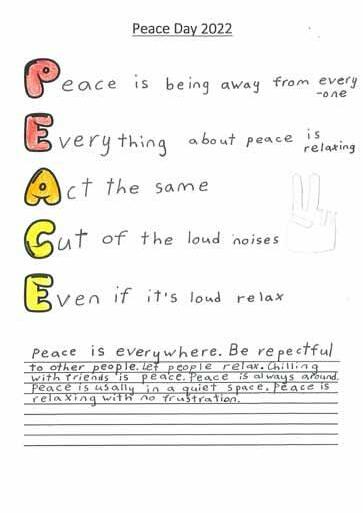 Peace Day 2022
Peace is being away from every
-one
Everything about peace is
relaxing
Act the same
Cut of the loud noises
Even if it's loud relax
Peace is everywhere. Be repectful
to other people. Let people relax. Chilling
with friends is peace. Peace is always around.
Peace is usally in a quiet space. Peace is
relaxing with no frustration.